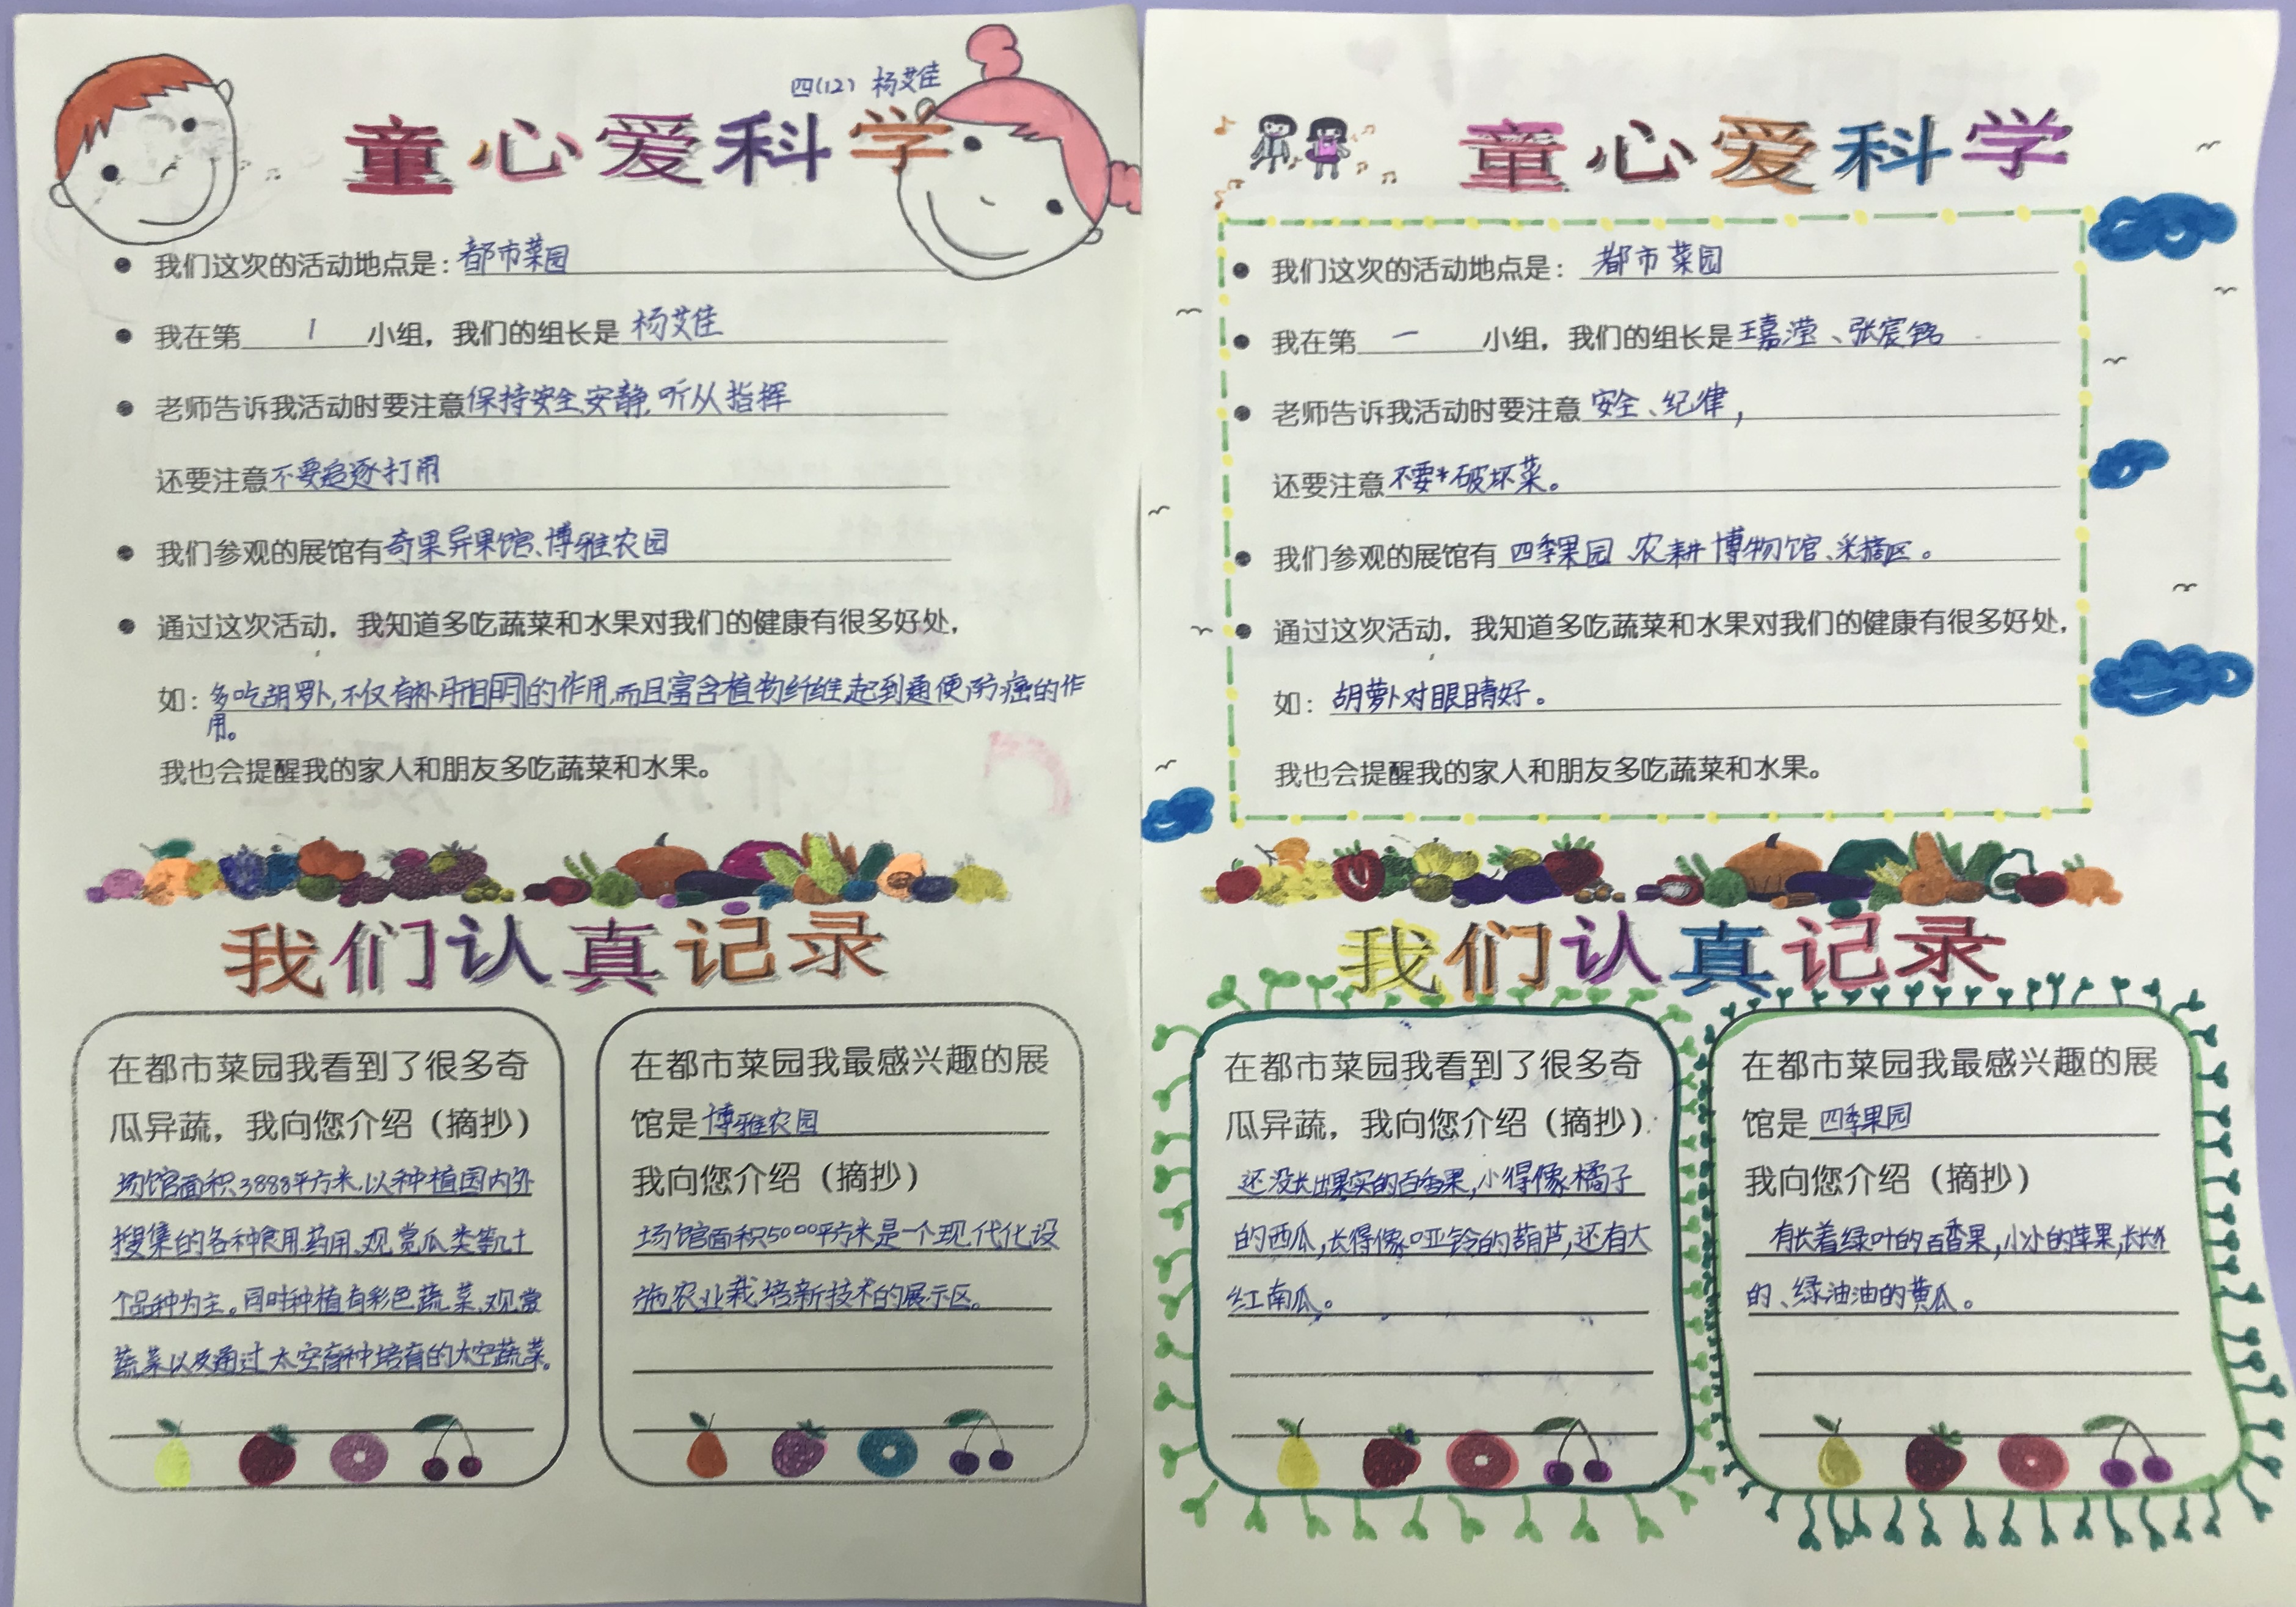 四(12) 杨艾佳
童心爱科学
我们这次的活动地点是：都市菜园
我在第1小组，我们的组长是杨艾佳
老师告诉我活动时要注意保持安全、安静，听从指挥
还要注意不要追逐打闹
我们参观的展馆有奇果异果馆、博雅农园
通过这次活动，我知道多吃蔬菜和水果对我们的健康有很多好处，
如：多吃胡罗卜，不仅有补肝明的作用，而且富含植物纤维，起到通便防癌的作
用。
我也会提醒我的家人和朋友多吃蔬菜和水果。
我们认真记录
在都市菜园我看到了很多奇
瓜异蔬，我向您介绍（摘抄）
场馆面积3888平方米，以种植国内外
搜集的各种食用、药用、观赏瓜类等几十
个品种为主。同时种植有彩色蔬菜、观赏
蔬菜以及通过太空育种培育的太空蔬菜。
在都市菜园我最感兴趣的展
馆是博雅农园
我向您介绍（摘抄）
场馆面积5000平方米是一个现代化设
施农业栽培新技术的展示区。
童心爱科学
我们这次的活动地点是：都市菜园
我在第一小组，我们的组长是王嘉滢、张宸铭
老师告诉我活动时要注意安全、纪律，
还要注意不要破坏菜。
我们参观的展馆有四季果园、农耕博物馆、采摘区。
通过这次活动，我知道多吃蔬菜和水果对我们的健康有很多好处，
如：胡萝卜对眼睛好。
我也会提醒我的家人和朋友多吃蔬菜和水果。
我们认真记录
在都市菜园我看到了很多奇
瓜异蔬，我向您介绍（摘抄）
还没长出果实的百香果，小得像橘子
的西瓜，长得像哑铃的葫芦，还有大
红南瓜。
在都市菜园我最感兴趣的展
馆是四季果园
我向您介绍（摘抄）
有长着绿叶的百香果，小小的苹果，长长
的、绿油油的黄瓜。